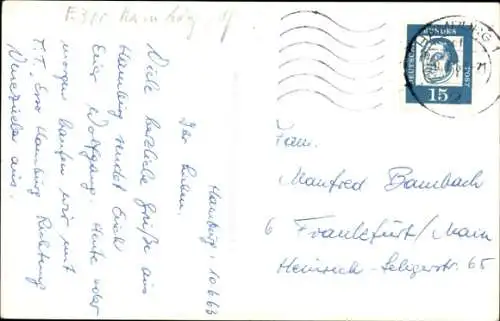 Hamburg, 10.6.63
Ihr Lieben.
Viele herzliche Grüße aus
Hamburg sendet Euch
Euer Wolfgang. Heute oder
morgen laufen wir mit
T.T. „Esso Hamburg" Richtung
Venezuela aus.
DEUTSCHE
BUNDES
POST
15
Fam.
Manfred Bambach
6 Frankfurt/Main
Heinrich-Seligerstr. 65